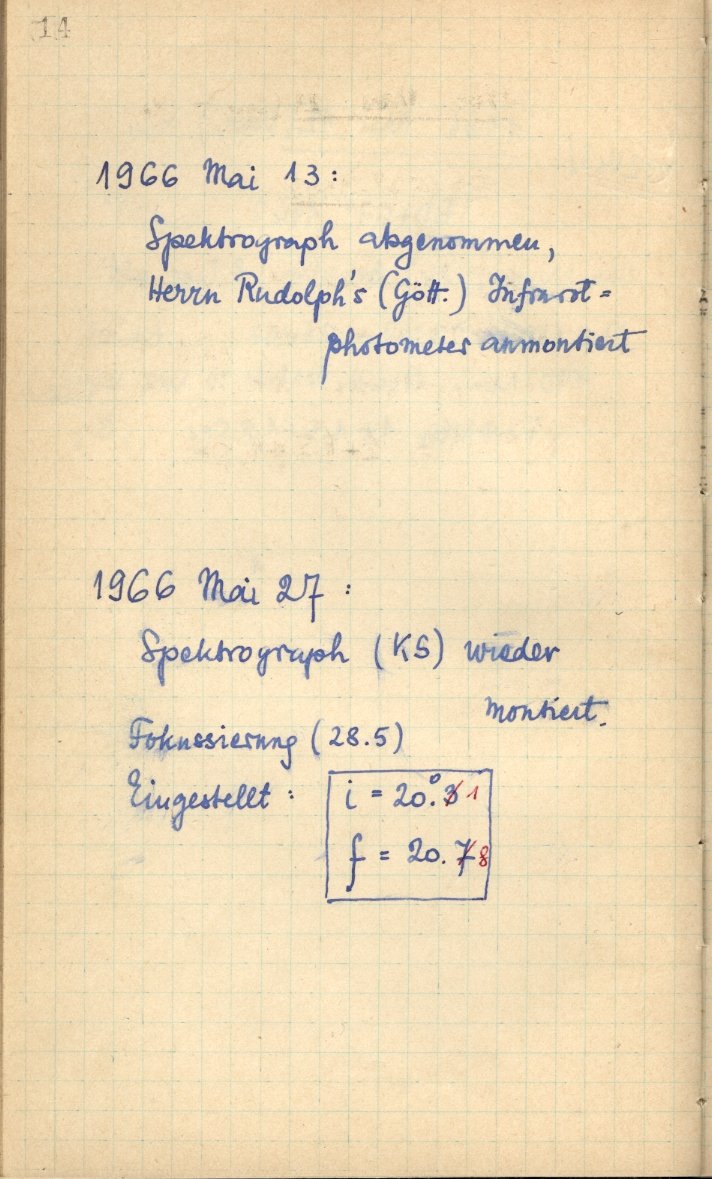 14
1966 Mai 13:
Spektrograph abgenommen,
Herrn Rudolph's (Gött.) Infrarot=
photometer anmontiert
1966 Mai 27:
Spektrograph (KS) wieder
montiert.
Fokussierung (28.5)
Eingestellt: i = 20°.3 1
f = 20.7 8